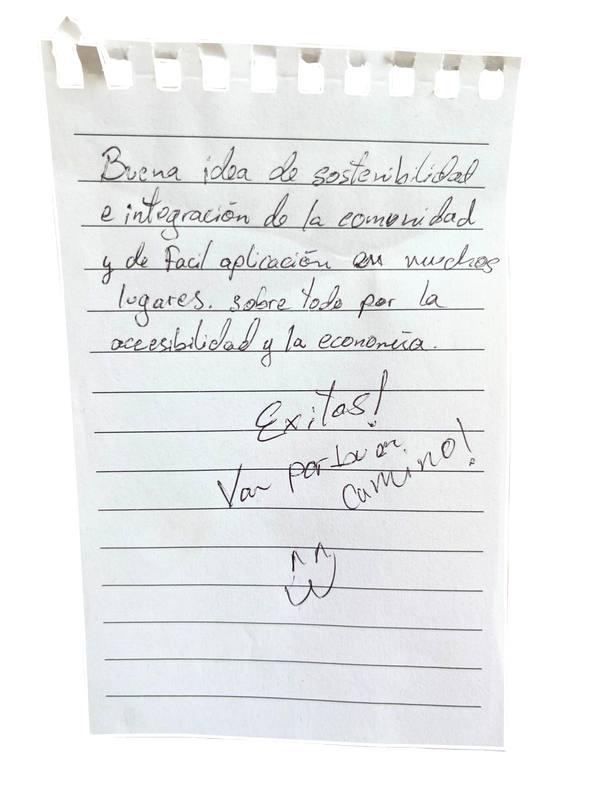 Buena idea de sostenibilidad
e integración de la comunidad
y de Facil aplicación en muchos
lugares. sobre todo por la
accesibilidad y la economía.
Exitos!
Van por buen
camino!